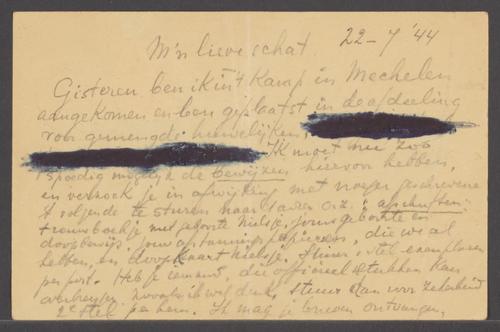 M'n lieve schat. 22-7 '44
Gisteren ben ik in 't kamp in Mechelen
aangekomen en ben geplaatst in de afdeeling
voor gemengde huwelijken,
Ik moet nu zoo
spoedig mogelijk de bewijzen hiervoor hebben,
en verzoek je in afwijking met vorige geschrevene
't volgende te sturen naar
trouwboekje met geboorte Nelsje, jouw geboorte en
doopbewijs, jouw afstammingspapieren, die we al
hebben, en doopkaart Nelsje. Stuur 1 stel exemplaren
per post. Heb je iemand, die officieel stukken kan
overbrengen, stuur dan voor zekerheid
2e stel per hem. Ik mag je brieven ontvangen,